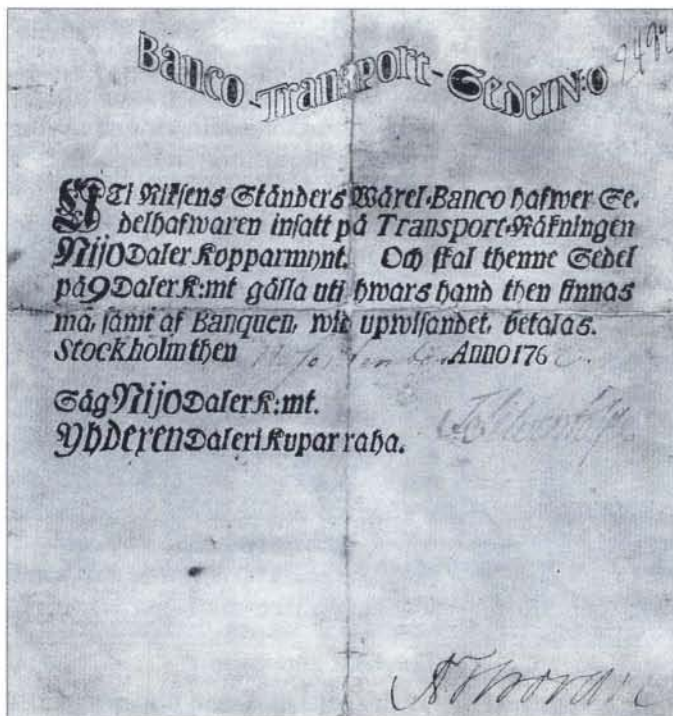 Banco-Transport-Sedel N:o
UTi Riksens Ständers Wäxel-Banco hafwer Se-
delhafwaren insatt på Transport-Räkningen
Nijo Daler Kopparmynt. Och skal thenne Sedel
på 9 Daler K:mt gälla uti hwars hand then finnas
må, samt af Banquen, wid upwisandet, betalas.
Stockholm then Anno 176
Säg Nijo Daler K:mt.
Yhdexen Daleri Kupar raha.